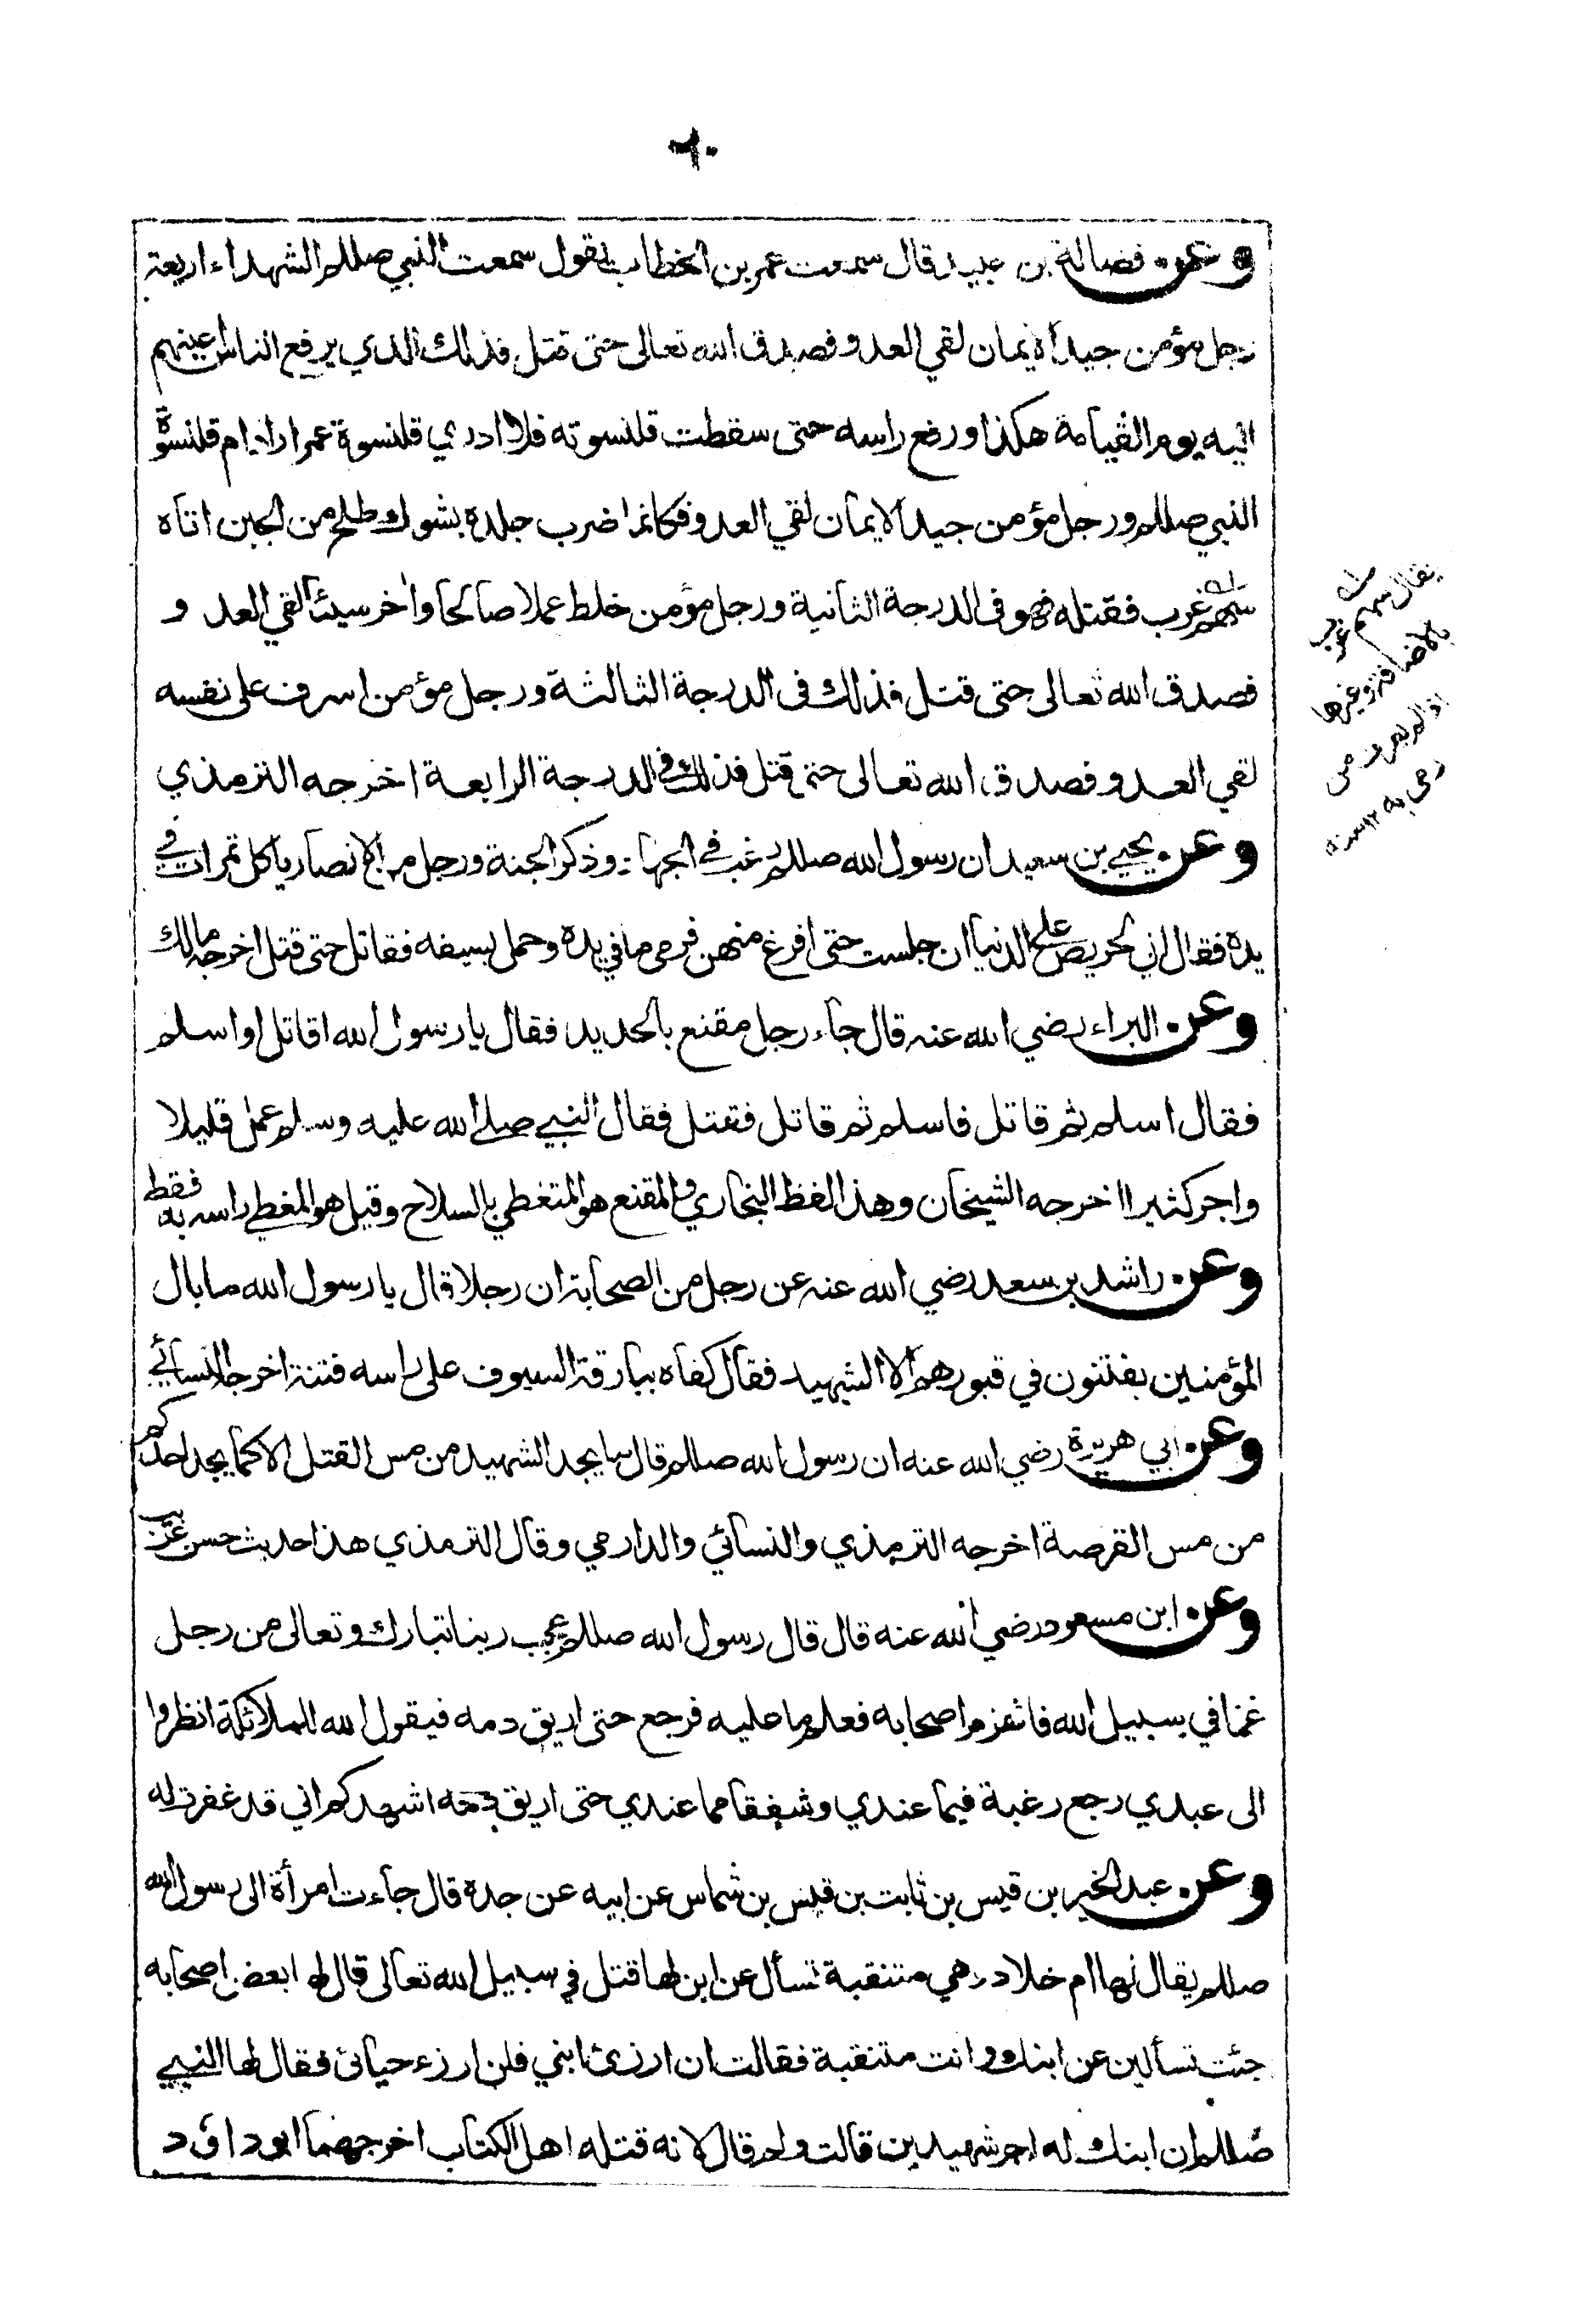 ٢٠
وعن فضالة بن عبيد قال سمعت عمر بن الخطاب يقول سمعت النبي صللم الشهداء اربعة
رجل مؤمن جيد الايمان لقي العدو فصدق الله تعالى حتى قتل فذلك الذي يرفع الناس اعينهم
اليه يوم القيامة هكذا ورفع راسه حتى سقطت قلنسوته فلا ادري قلنسوة عمر اراد ام قلنسوة
النبي صللم ورجل مؤمن جيد الايمان لقي العدو فكانما ضرب جلده بشوك طلح من الجبن اتاه
سهم غرب فقتله فهو في الدرجة الثانية ورجل مؤمن خلط عملا صالحا واخر سيئا لقي العد و
فصدق الله تعالى حتى قتل فذلك في الدرجة الثالثة ورجل مؤمن اسرف على نفسه
لقي العدو فصدق الله تعالى حتى قتل فذلك في الدرجة الرابعة اخرجه الترمذي
وعن يحيى بن سعيد ان رسول الله صللم رغب في الجهاد وذكر الجنة ورجل من الانصار ياكل تمرات في
يده فقال اني لحريص على الدنيا ان جلست حتى افرغ منهن فرمى ما في يده وحمل بسيفه فقاتل حتى قتل اخرجه مالك
وعن البراء رضي الله عنه قال جاء رجل مقنع بالحديد فقال يا رسول الله اقاتل او اسلم
فقال اسلم ثم قاتل فاسلم ثم قاتل فقتل فقال النبي صلى الله عليه وسلم عمل قليلا
واجر كثيرا اخرجه الشيخان وهذا لفظ البخاري والمقنع هو المتغطي بالسلاح وقيل هو المغطي راسه به فقط
وعن راشد بن سعد رضي الله عنه عن رجل من الصحابة ان رجلا قال يا رسول الله ما بال
المؤمنين يفتنون في قبورهم الا الشهيد فقال كفاه ببارقة السيوف على راسه فتنة اخرجه النسائي
وعن ابي هريرة رضي الله عنه ان رسول الله صللم قال ما يجد الشهيد من مس القتل الا كما يجد احدكم
من مس القرصة اخرجه الترمذي والنسائي والدارمي وقال الترمذي هذا حديث حسن غريب
وعن ابن مسعود رضي الله عنه قال قال رسول الله صللم عجب ربنا تبارك وتعالى من رجل
غزا في سبيل الله فانهزم اصحابه فعلم ما عليه فرجع حتى اريق دمه فيقول الله للملائكة انظروا
الى عبدي رجع رغبة فيما عندي وشفقا مما عندي حتى اريق دمه اشهدكم اني قد غفرت له
وعن عبد الخير بن قيس بن ثابت بن قيس بن شماس عن ابيه عن جده قال جاءت امرأة الى رسول الله
صللم يقال لها ام خلاد وهي متنقبة تسأل عن ابن لها قتل في سبيل الله تعالى قال لها بعض اصحابه
جئت تسألين عن ابنك وانت متنقبة فقالت ان ارزئ ابني فلن ارزء حيائي فقال لها النبي
صللم ان ابنك له اجر شهيدين قالت ولم قال لانه قتله اهل الكتاب اخرجهما ابو داؤد
يقال سهم غرب
بالاضافة وغيرها
اذا لم يعرف من
رمى به ١٢ منه